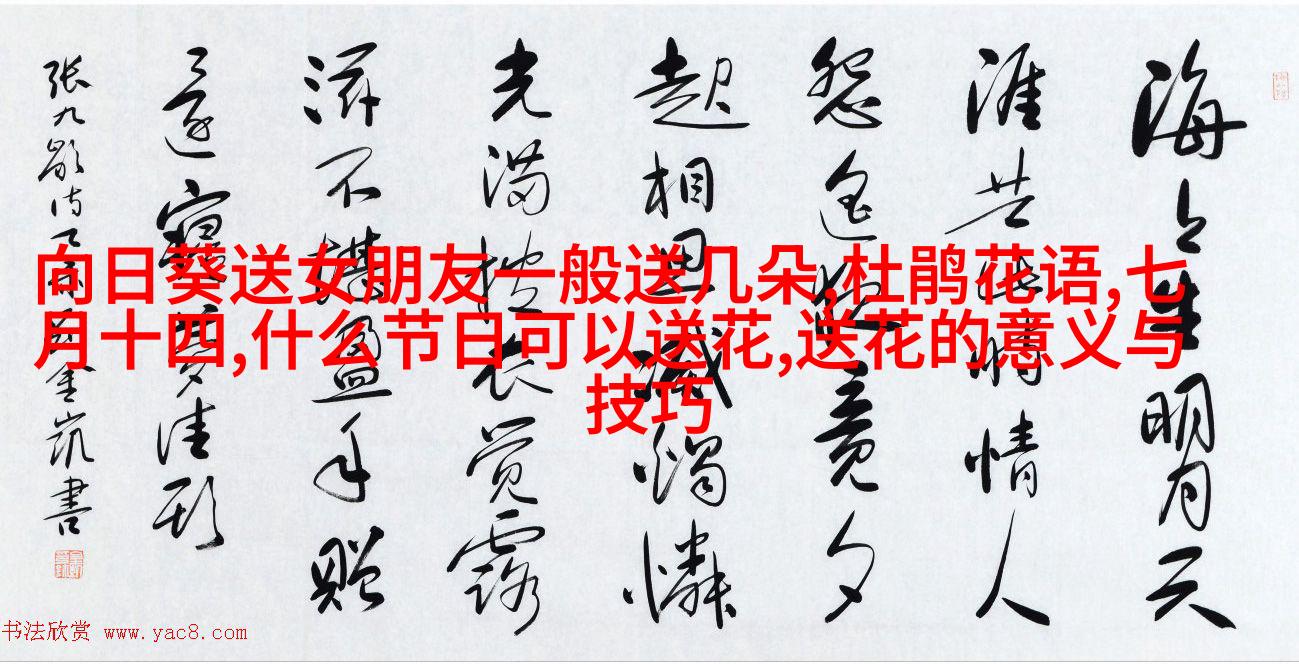 向日葵送女朋友一般送几朵,杜鹃花语,七
月十四,什么节日可以送花,送花的意义与
技巧
海上生明月天
涯共此时情人
怨遥夜竟夕
起相思滅燭憐
光满披衣觉露
滋不堪盈手贈
还寝夢佳期
张九龄诗 金凯書
书法欣赏 www.yac8.com